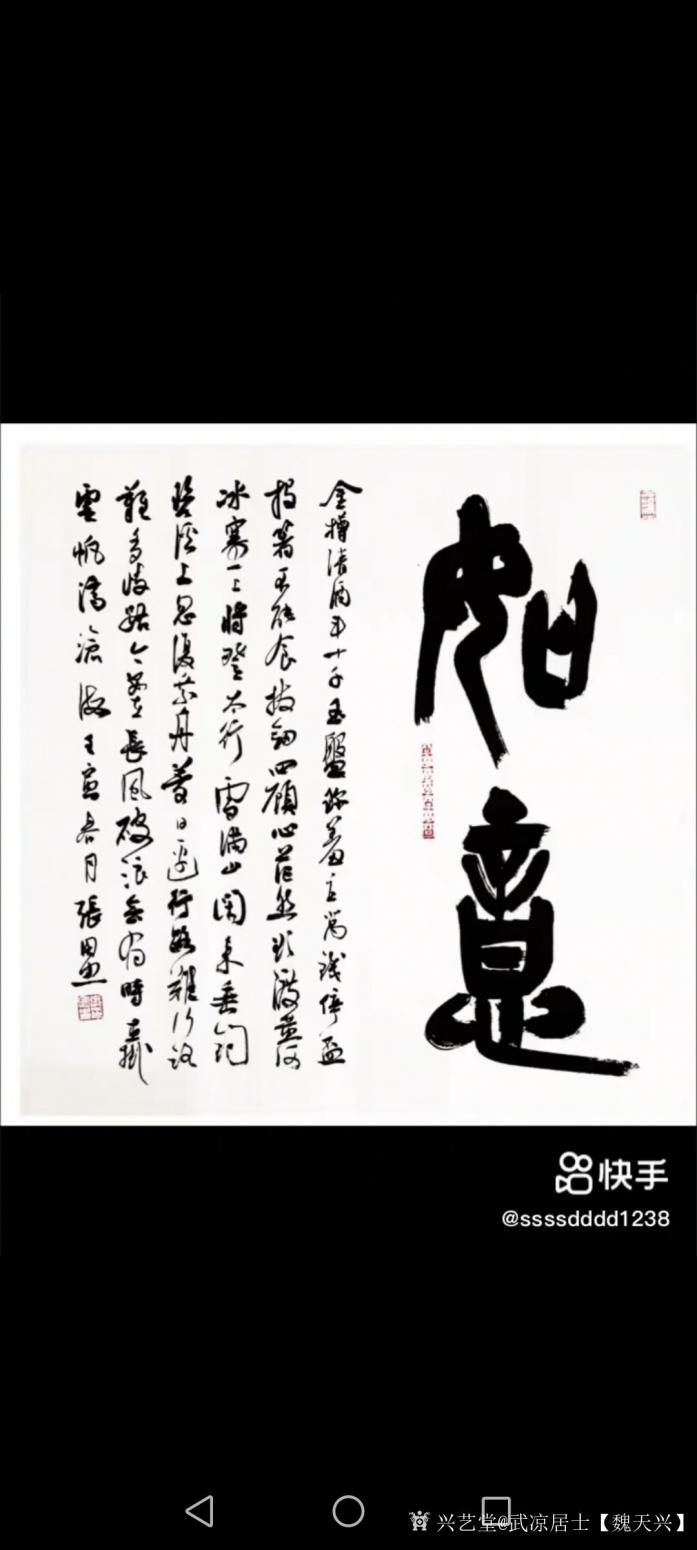 如意
金樽清酒斗十千玉盤珍羞直萬錢停盃
投箸不能食拔劍四顧心茫然欲渡黃河
冰塞川將登太行雪滿山閑來垂釣
碧溪上忽復乘舟夢日邊行路難行路
難多歧路今安在長風破浪會有時直掛
雲帆濟滄海壬寅春月張
快手
@ssssdddd1238
兴艺堂@武凉居士【魏天兴】